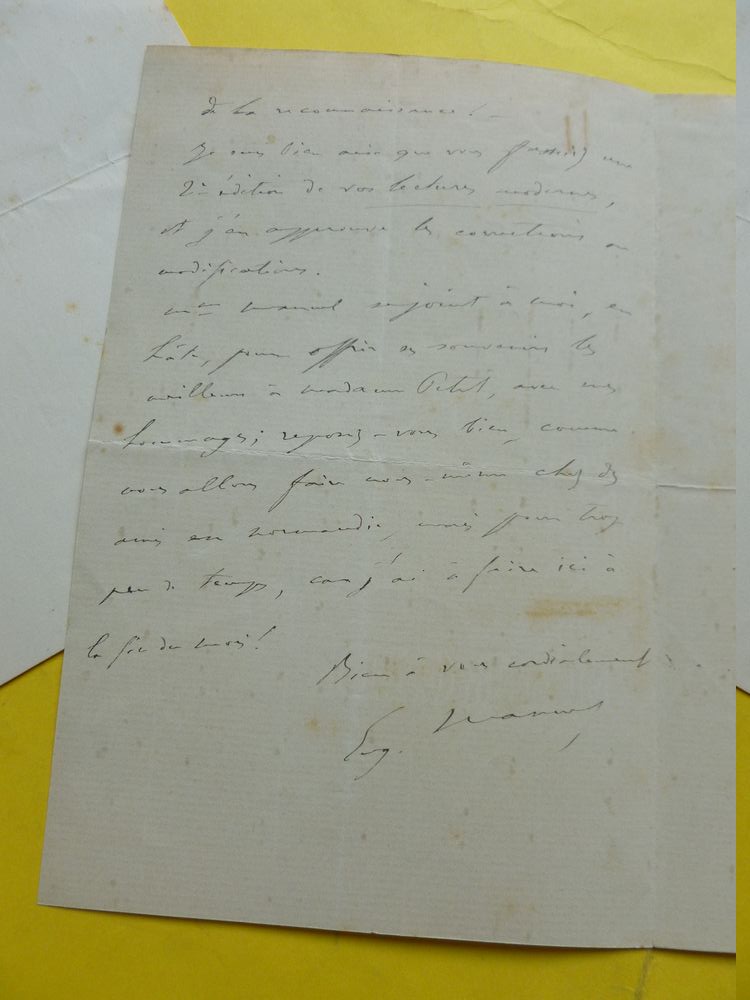 de la reconnaissance! –
Je suis bien aise que vous fassiez une
2e édition de vos lectures modernes,
et j'en approuve les corrections ou
modifications.
Mme Manuel se joint à moi, en
hâte, pour offrir ses souvenirs les
meilleurs à Madame Petit, avec mes
hommages; reposez-vous bien, comme
nous allons faire nous-même chez des
amis en Normandie, mais pour trop
peu de temps, car j'ai à faire ici à
la fin du mois!
Bien à vous cordialement
Eug. Manuel